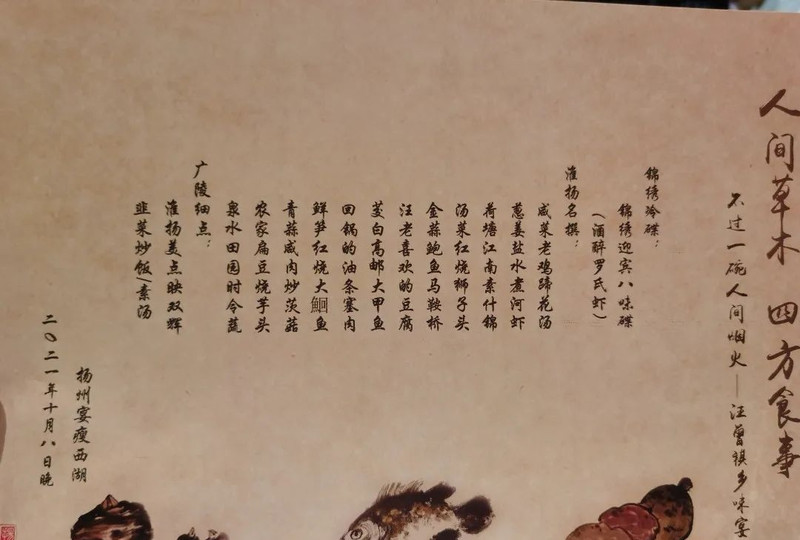 人间草木 四方食事
不过一碗人间烟火——汪曾祺乡味宴
锦绣冷碟：
锦绣迎宾八味碟
（酒醉罗氏虾）
淮扬名撰：
咸菜老鸡蹄花汤
葱姜盐水煮河虾
荷塘江南素什锦
汤菜红烧狮子头
金蒜鲍鱼马鞍桥
汪老喜欢的豆腐
茭白高邮大甲鱼
回锅的油条塞肉
鲜笋红烧大鮰鱼
青蒜咸肉炒茨菇
农家扁豆烧芋头
泉水田园时令蔬
广陵细点：
淮扬美点映双辉
韭菜炒饭/素汤
扬州宴瘦西湖
二〇二一年十月八日晚